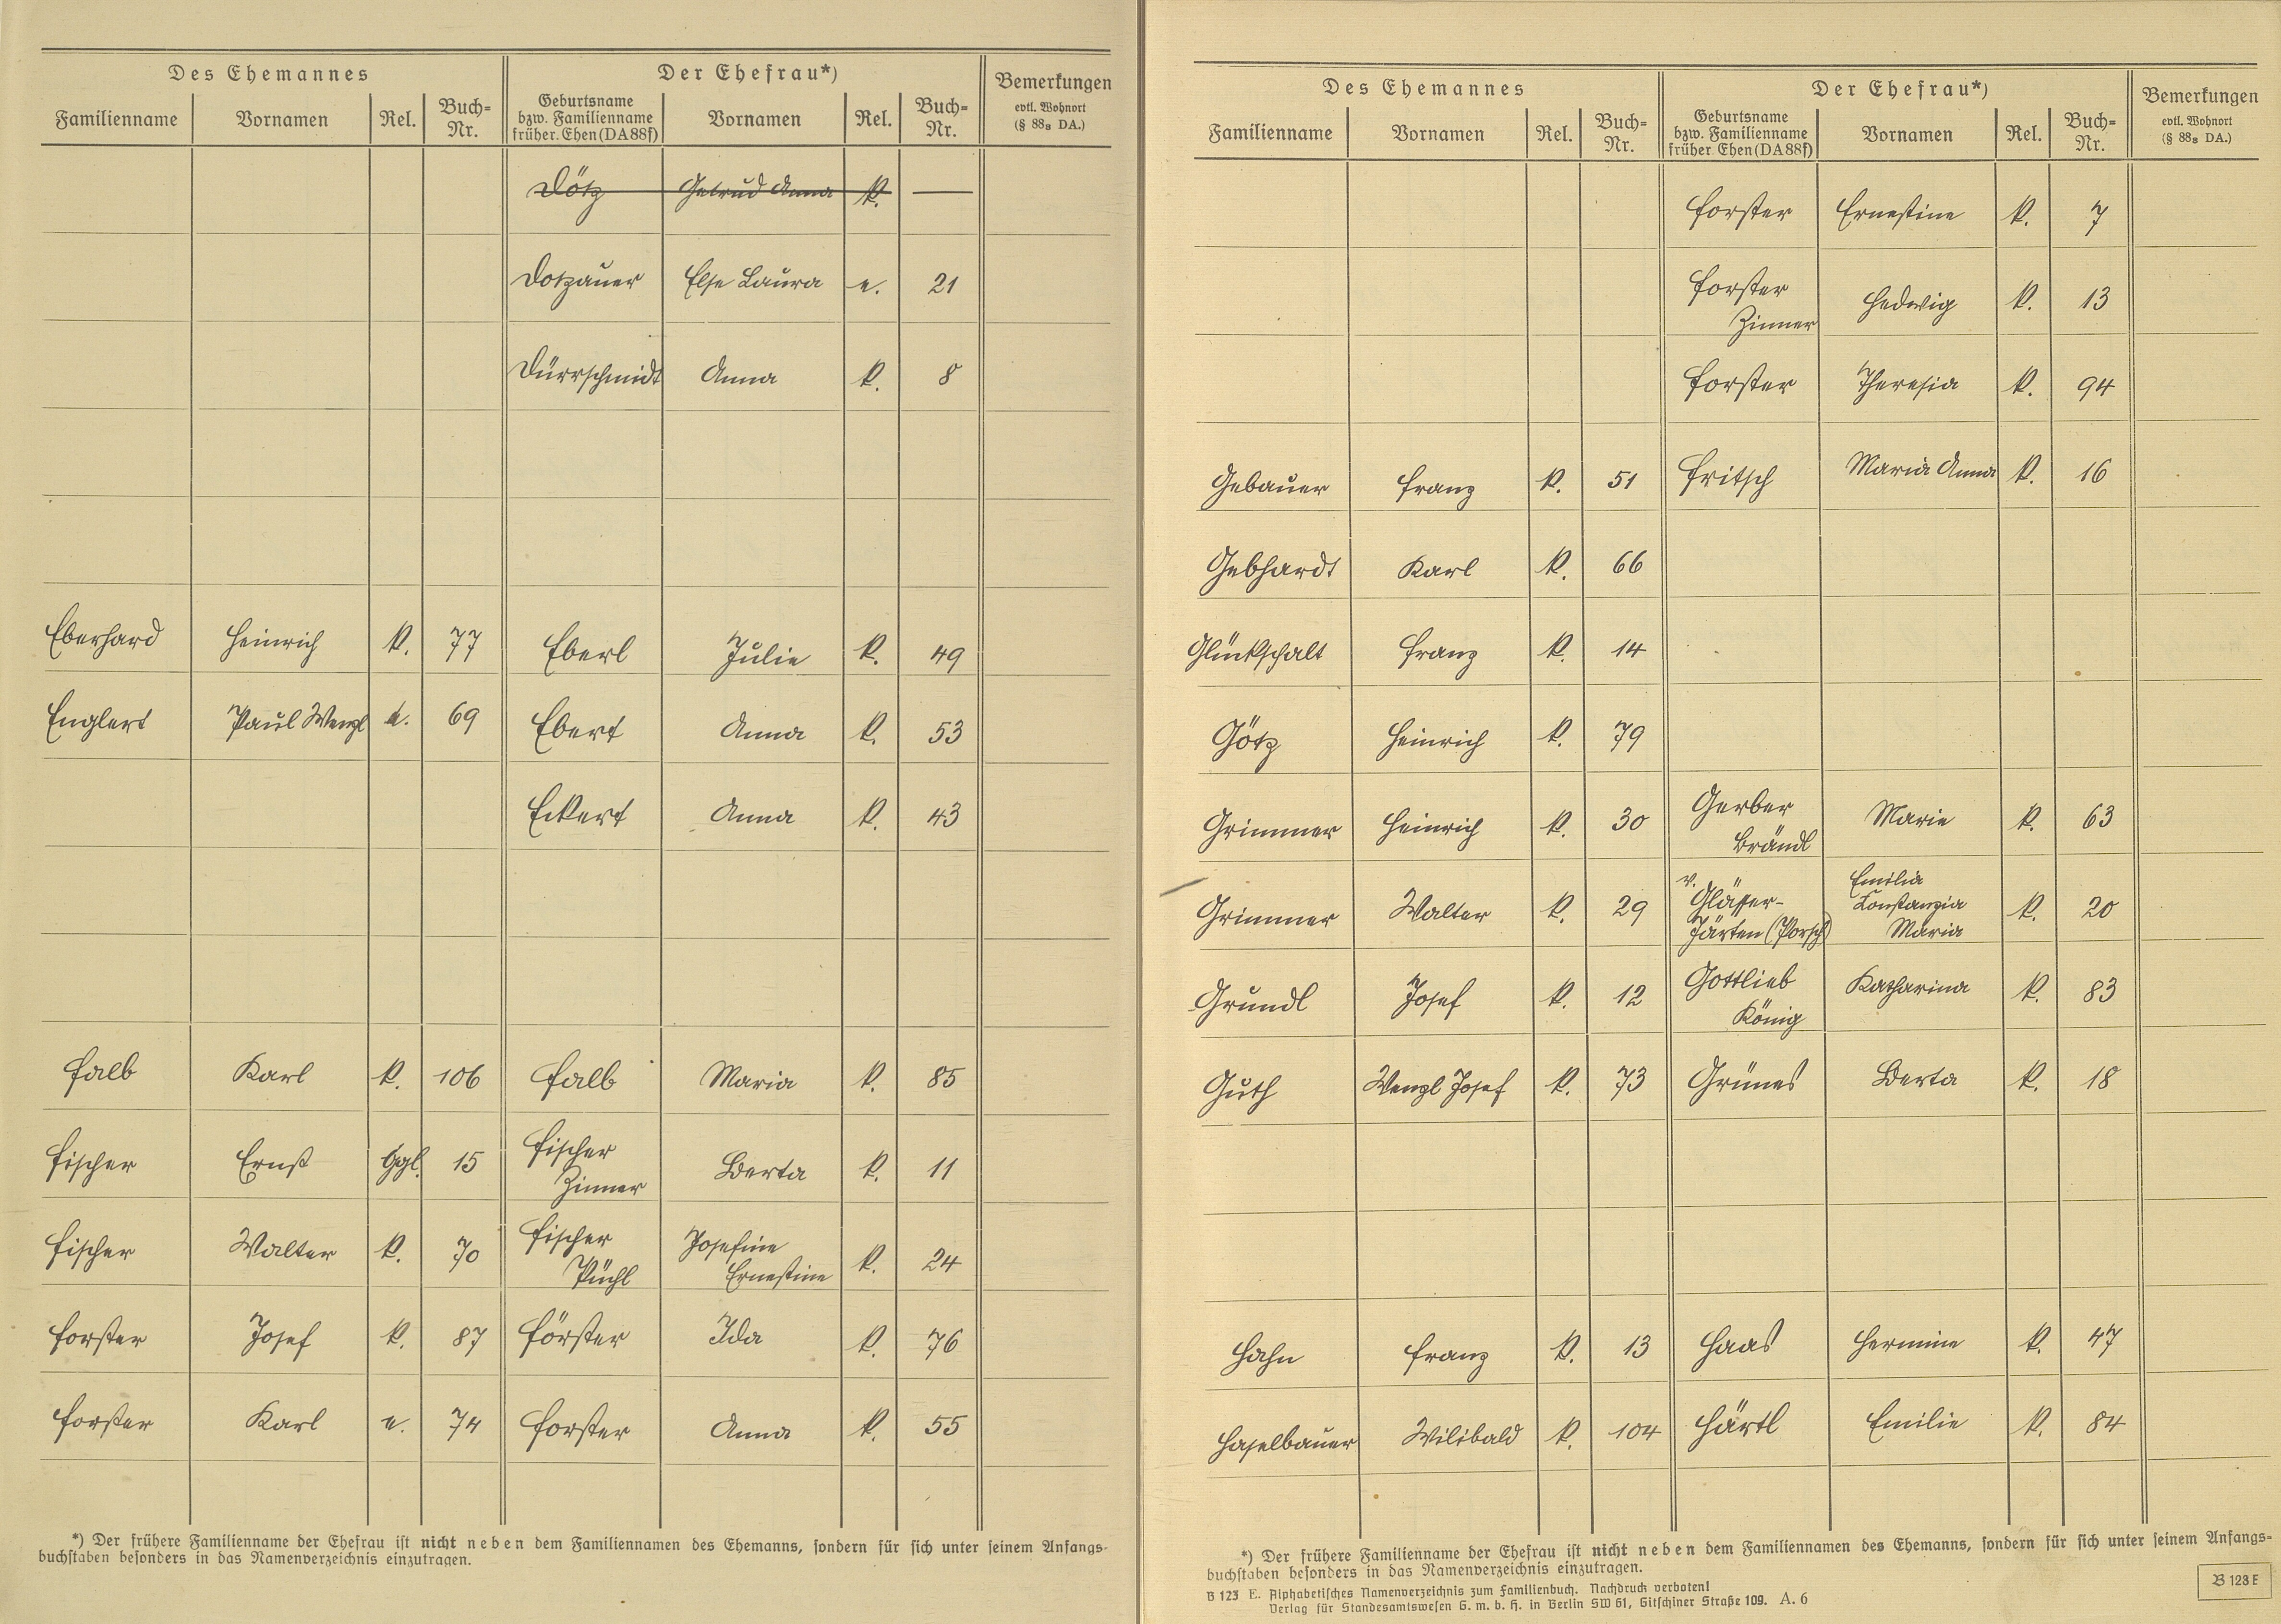 Des Ehemannes
Der Ehefrau*)
Bemerkungen
evtl. Wohnort
(§ 88₈ DA.)
Familienname
Vornamen
Rel.
Buch-
Nr.
Geburtsname
bzw. Familienname
früher. Ehen (DA 88f)
Vornamen
Rel.
Buch-
Nr.
Dötz Getrud Anna k. —
Dotzauer Else Laura e. 21
Dürrschmidt Anna k. 8
Eberhard Heinrich k. 77 Eberl Julie k. 49
Englert Paul Wenzl 69 Ebert Anna k. 53
Eckert Anna k. 43
Falb Karl k. 106 Falb Maria k. 85
Fischer Ernst Ggl. 15 Fischer Berta k. 11
Zinner
Fischer Walter k. 70 Fischer Josefine k. 24
Püchl Ernestine
Forster Josef k. 87 Förster Ida k. 76
Forster Karl e. 74 Forster Anna k. 55
*) Der frühere Familienname der Ehefrau ist nicht neben dem Familiennamen des Ehemanns, sondern für sich unter seinem Anfangs-
buchstaben besonders in das Namenverzeichnis einzutragen.
Des Ehemannes
Der Ehefrau*)
Bemerkungen
evtl. Wohnort
(§ 88₈ DA.)
Familienname
Vornamen
Rel.
Buch-
Nr.
Geburtsname
bzw. Familienname
früher. Ehen (DA 88f)
Vornamen
Rel.
Buch-
Nr.
Forster Ernestine k. 7
Forster Hedwig k. 13
Zinner
Forster Theresia k. 94
Gebauer Franz k. 51 Fritsch Maria Anna k. 16
Gebhardt Karl k. 66
Glückschalt Franz k. 14
Götz Heinrich k. 79
Grimmer Heinrich k. 30 Gerber Marie k. 63
Brändl
v. Emilia
Grimmer Walter k. 29 Glässer- Constanzia k. 20
Järten (Porsch) Maria
Grundl Josef k. 12 Gottlieb Katharina k. 83
König
Guth Wenzl Josef k. 73 Grünes Berta k. 18
Hahn Franz k. 13 Haas Hermine k. 47
Haselbauer Wilibald k. 104 Härtl Emilie k. 84
*) Der frühere Familienname der Ehefrau ist nicht neben dem Familiennamen des Ehemanns, sondern für sich unter seinem Anfangs-
buchstaben besonders in das Namenverzeichnis einzutragen.
B 123 E. Alphabetisches Namenverzeichnis zum Familienbuch. Nachdruck verboten!
Verlag für Standesamtswesen G. m. b. H. in Berlin SW 61, Gitschiner Straße 109. A. 6
B 123 E